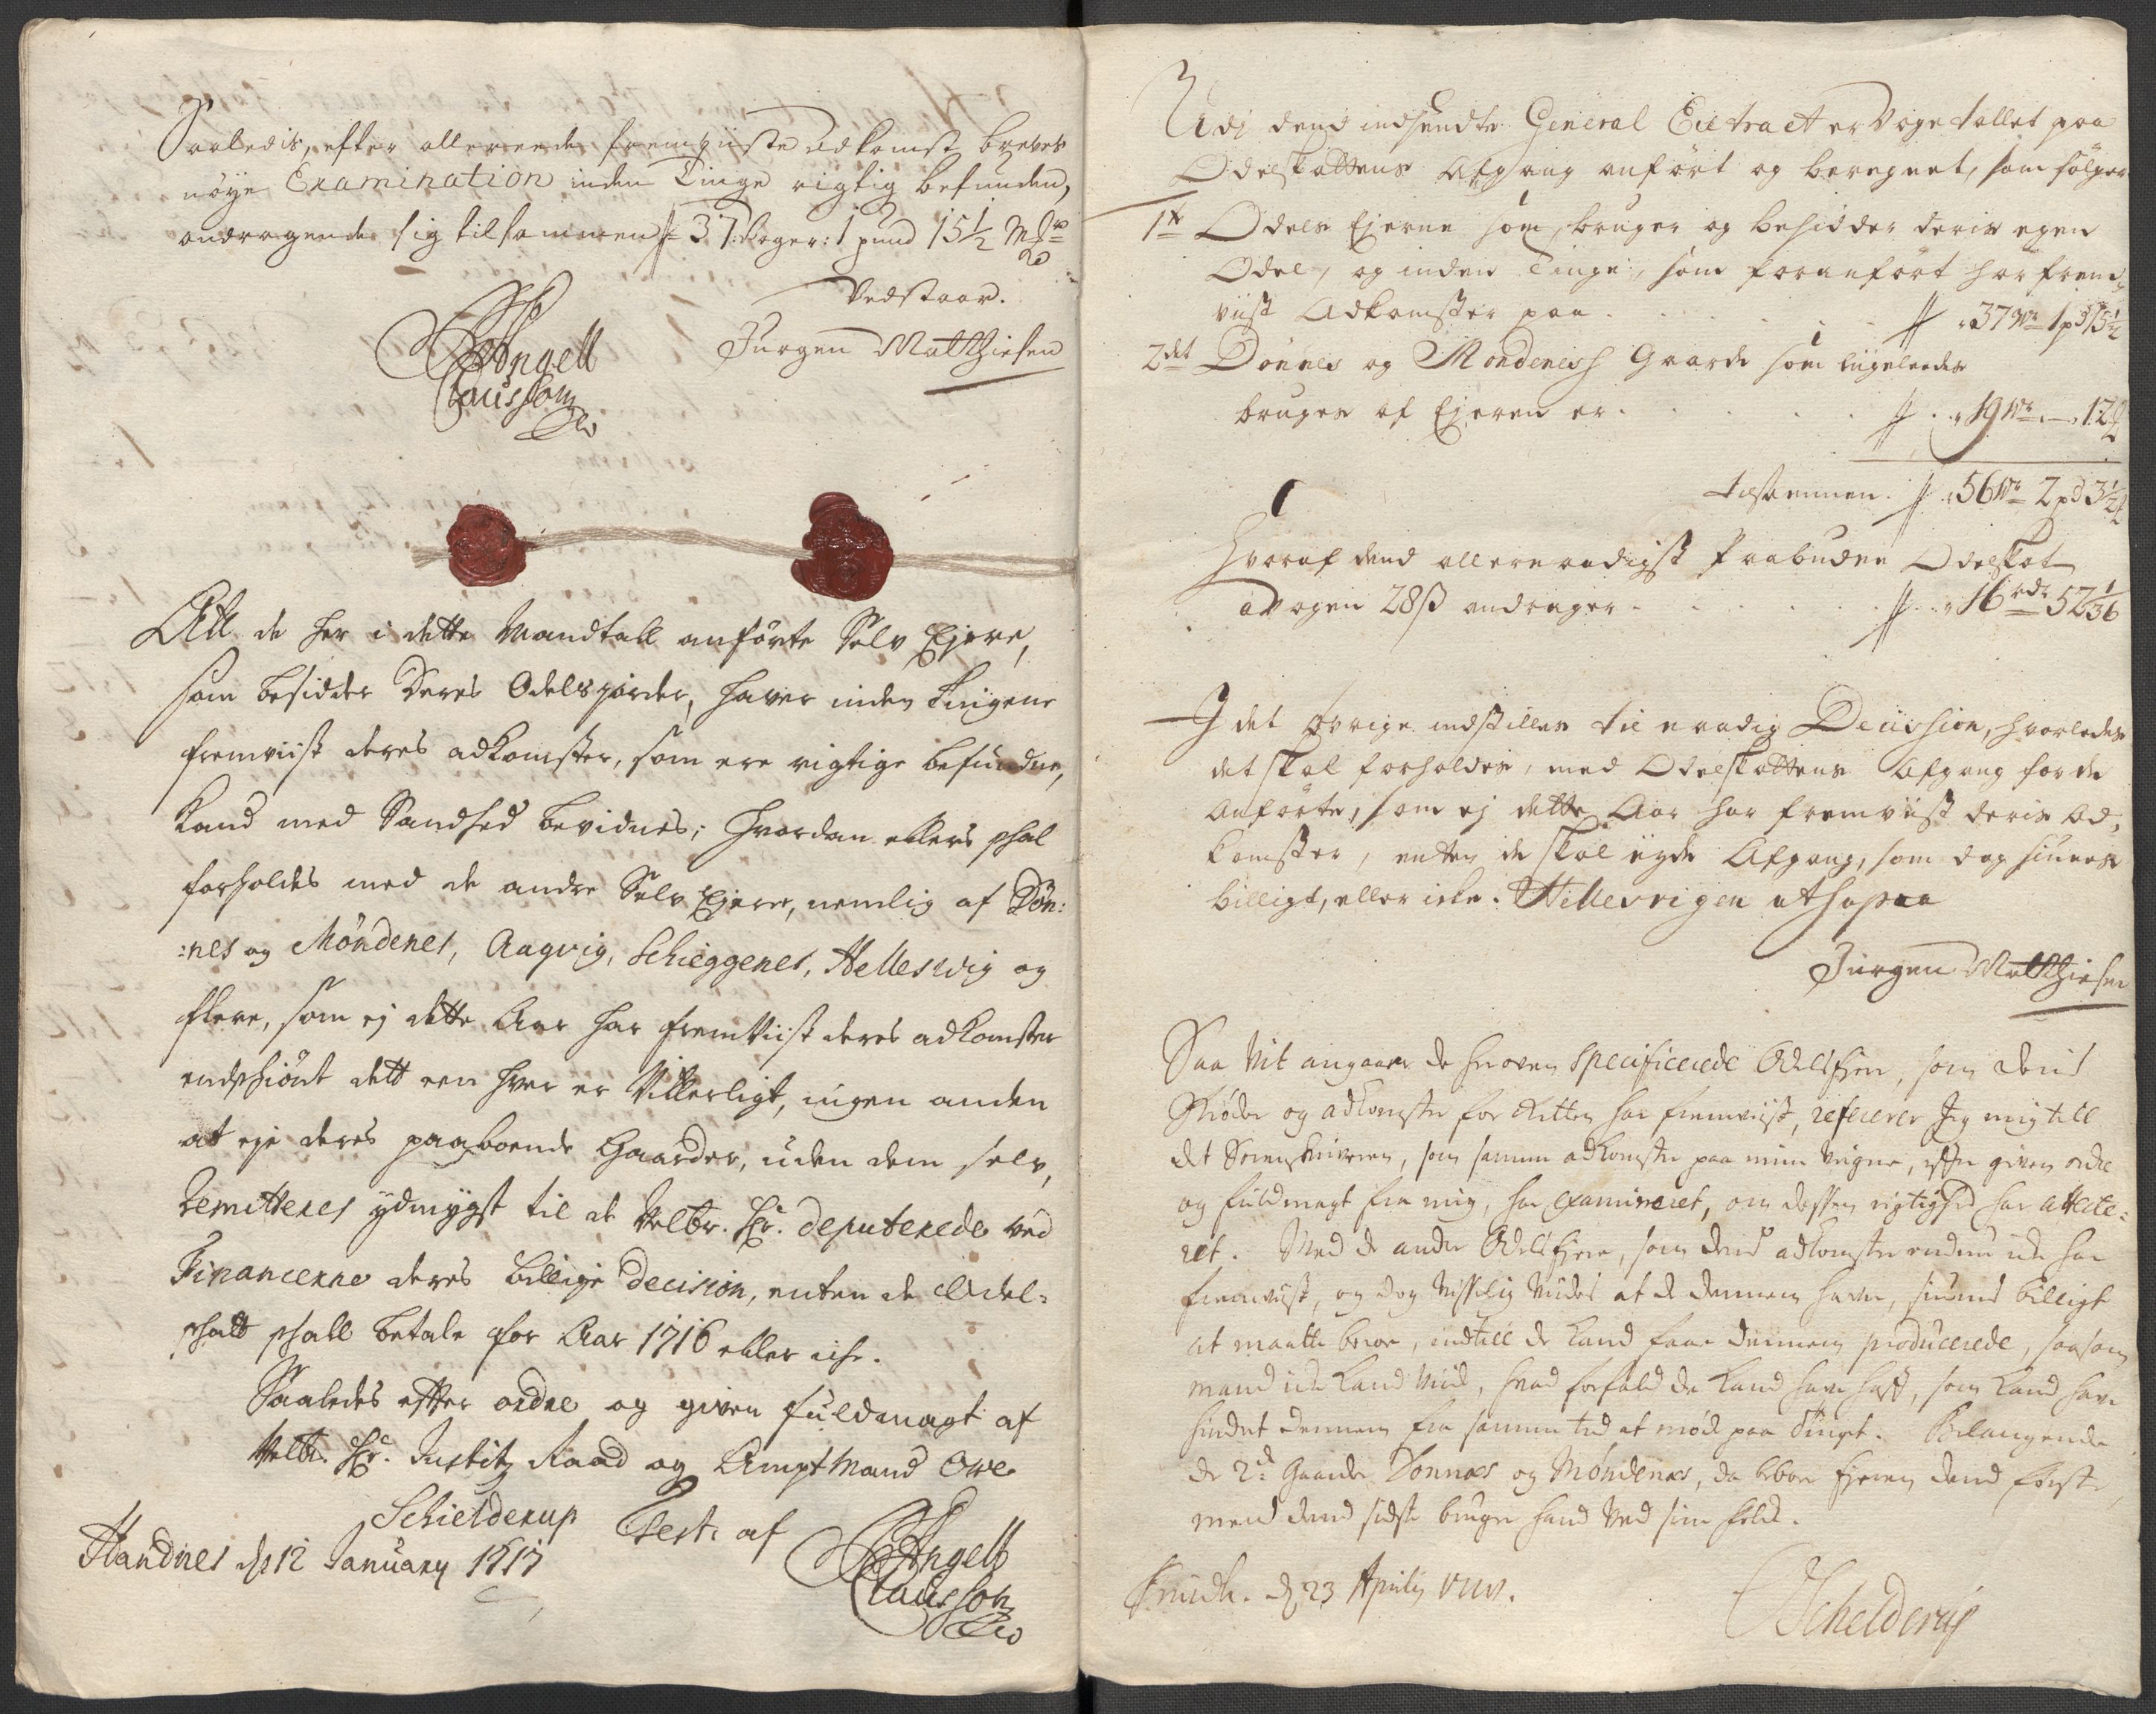 Saaledis, efter allereede fremviiste adkomst breves
nøye Examination inden Tinge rigtig befunden,
andragende sig tilsammen # 37 Voger: 1 pund 15½ Mk
Vedstaar.
Jürgen Matthiesen
Angell
Claussøn
Att de her i dette Mandtall anførte Selv Ejere,
som besidder deres Odelsgorder, haver inden Tingene
fremviist deres adkomster, som ere rigtige befundne,
kand med Sandhed bevidnes; hvordan ellers skal
forholdes med de andre Selv Ejere, nemlig af Døn:
:nes og Møndenes, Aagvig, Schieggenes, Hellesvig og
flere, som ej dette Aar har fremviist deres adkomster
endskiønt dett een hver er Vitterligt, ingen anden
at eje deres paaboende Gaarder, uden dem selv,
Remitteres ydmygst til de Velbr. Hr. deputerede ved
Financerne deres billige decision, enten de Odel-
skatt skall betale for Aar 1716 eller icke.
Saaledes efter ordre og given fuldmagt af
Velb. Hr. Justitz Raad og Amptmand Owe
Schielderup Test. af
Handnes d. 12 January 1717
Angell
Claussøn
Udj dend indsendte General Extract er Vogetallet paa
Odelskattens Afgang anført og beregnet, som følger
1te Odels Ejerne som bruger og besidder deris egen
Odel, og inden Tinge, som foranført har frem
viist Adkomster paa . . . # 37 Wr 1 pd 15½
2det Dønnes og Mondenes Gaarde som ligeleedes
bruges af Ejeren er . . . # 19 Wr — 12
tilsammen. # 56 Wr 2 pd 3½
Hvoraf dend allernaadigst Paabudne Odelskat
a Vogen 28 ß andrager . . . # 16 rdr 52 1/36
I det øvrige indstilles til naadig Decission, hvorledes
det skal forholdes, med Odelskattens Afgang for de
Anførte, som ej dette Aar har fremviist deris Ad,
komster, enten de skal nyde Afgang, som dog siunes
billigt, eller icke.
Jürgen Matthiesen
Saa vit angaaer de her oven specificerede Odelsejere, som deris
Skiøder og adkomster for Retten har fremviist, refererer Jeg mig till
det Sorenskriveren, som samme adkomster paa mine Vegne, efter given ordre
og fuldmagt fra mig, har examineret, om dessen rigtighed har atteste-
ret. Med de andre Odelsejere, som deris adkomster endnu icke har
fremviist, og dog visselig viides at de dennem haver, siunes billigt
at maatte beroe, indtill de kand faae dennem producerede, saasom
mand icke kand viide, hvad forfald de kand have haft, som kand have
hindret dennem fra samme tid at møde paa Tinget. Belangende
de 2de Gaarde Dønnæs og Møndenæs, da beboer Ejeren dend første,
men dend sidste bruger hand ved sine folck.
d. 23 Aprilis
Schelderup